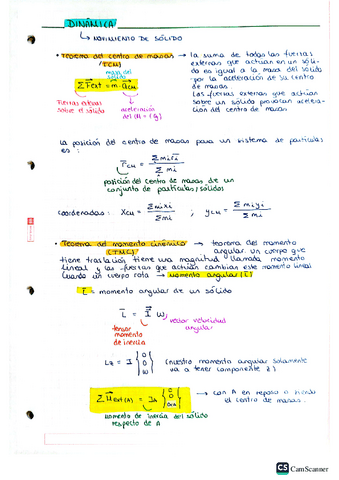 DINÁMICA
↳ MOVIMIENTO DE SÓLIDO
• Teorema del centro de masas → la suma de todas las fuerzas
(TCM) externas que actúan en un sóli-
do es igual a la masa del sólido
masa del sólido
por la aceleración de su centro
de masas.
Σ F⃗ext = m · a⃗CM
Las fuerzas externas que actúan
sobre un sólido provocan acelera-
ción del centro de masas.
Fuerzas externas
sobre el sólido
aceleración
del CM = (G)
La posición del centro de masas para un sistema de partículas
es:
r⃗CM = Σ mi r⃗i / Σ mi
posición del centro de masas de un
conjunto de partículas/sólidos
coordenadas: XCM = Σ mi xi / Σ mi ; yCM = Σ mi yi / Σ mi
• Teorema del momento cinético → teorema del momento
(TMC) angular. un cuerpo que
tiene traslación tiene una magnitud llamada momento
lineal y las fuerzas que actúan cambian este momento lineal
Cuando un cuerpo rota → momento angular (L⃗)
L⃗ = momento angular de un sólido
L⃗ = I⃗ ω⃗
vector velocidad
angular
tensor
momento
de inercia
= I {0 0 ω} (nuestro momento angular solamente
va a tener componente z)
Σ M⃗ext(A) = IA {0 0 } → con A en reposo o siendo
el centro de masas.
Momento de inercia del sólido
respecto de A
CS CamScanner